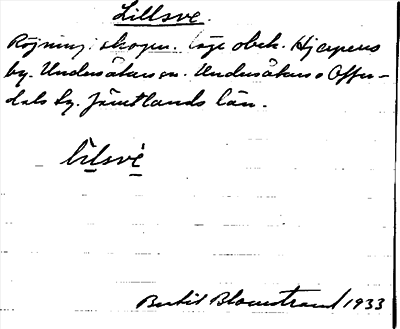 Lillsve.
Röjning i skogen. Läge obek. Hjerpens
by. Undersåkers sn. Undersåkers o Offer-
dals tg. Jämtlands län.
lìlsvè
Bertil Blomstrand 1933